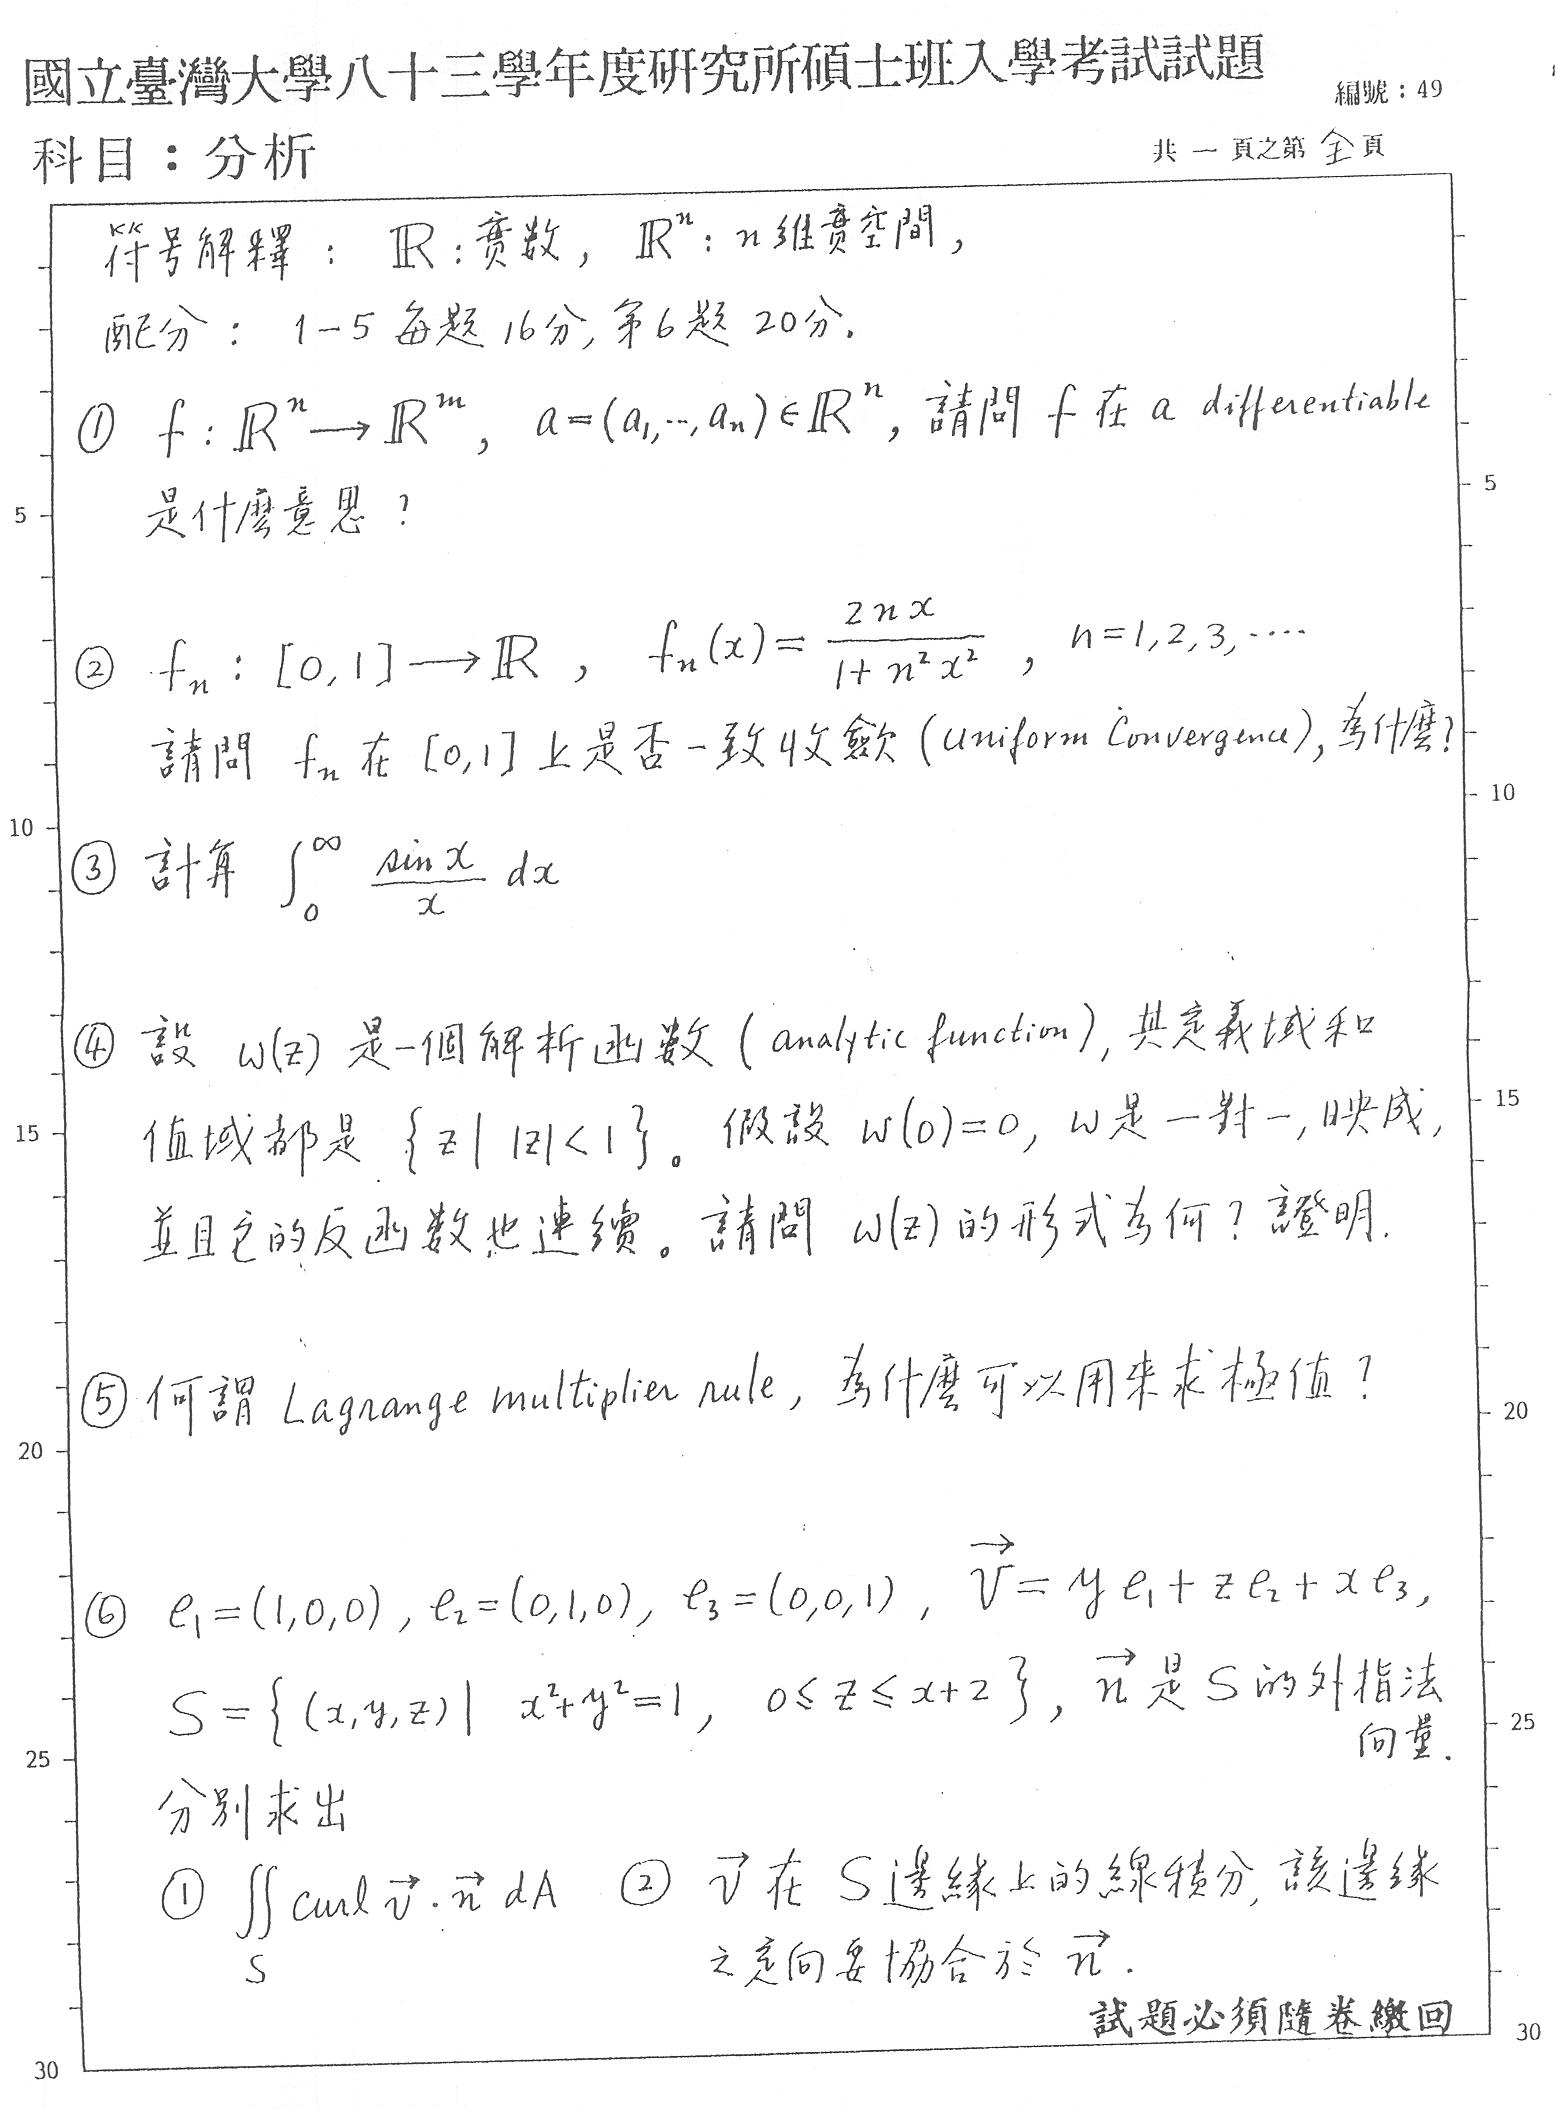 國立臺灣大學八十三學年度研究所碩士班入學考試試題
編號：49
科目：分析
共 一 頁之第 全 頁
符号解釋： ℝ：實數， ℝⁿ：n維實空間，
配分： 1－5 每題16分，第6題 20分.
① f : ℝⁿ ⟶ ℝᵐ, a=(a₁,⋯,aₙ)∈ℝⁿ, 請問 f 在 a differentiable
是什麼意思？
② fₙ : [0,1] ⟶ ℝ , fₙ(x) = 2nx / (1+n²x²) , n=1,2,3,‥‥
請問 fₙ 在 [0,1] 上是否一致收歛 (Uniform Convergence), 為什麼？
③ 計算 ∫₀^∞ (sin x / x) dx
④ 設 w(z) 是一個解析函數 (analytic function), 其定義域和
值域都是 {z | |z|<1}。假設 w(0)=0, w是一對一,映成,
並且它的反函數也連續。請問 w(z) 的形式為何？證明.
⑤ 何謂 Lagrange multiplier rule, 為什麼可以用來求極值？
⑥ e₁=(1,0,0), e₂=(0,1,0), e₃=(0,0,1), v⃗ = y e₁ + z e₂ + x e₃,
S = { (x,y,z) | x²+y²=1, 0≤z≤x+2 }, n⃗ 是 S 的外指法
向量.
分別求出
① ∬_S curl v⃗ · n⃗ dA ② v⃗ 在 S 邊緣上的線積分, 該邊緣
之定向要協合於 n⃗ .
試題必須隨卷繳回
5
10
15
20
25
30
5
10
15
20
25
30